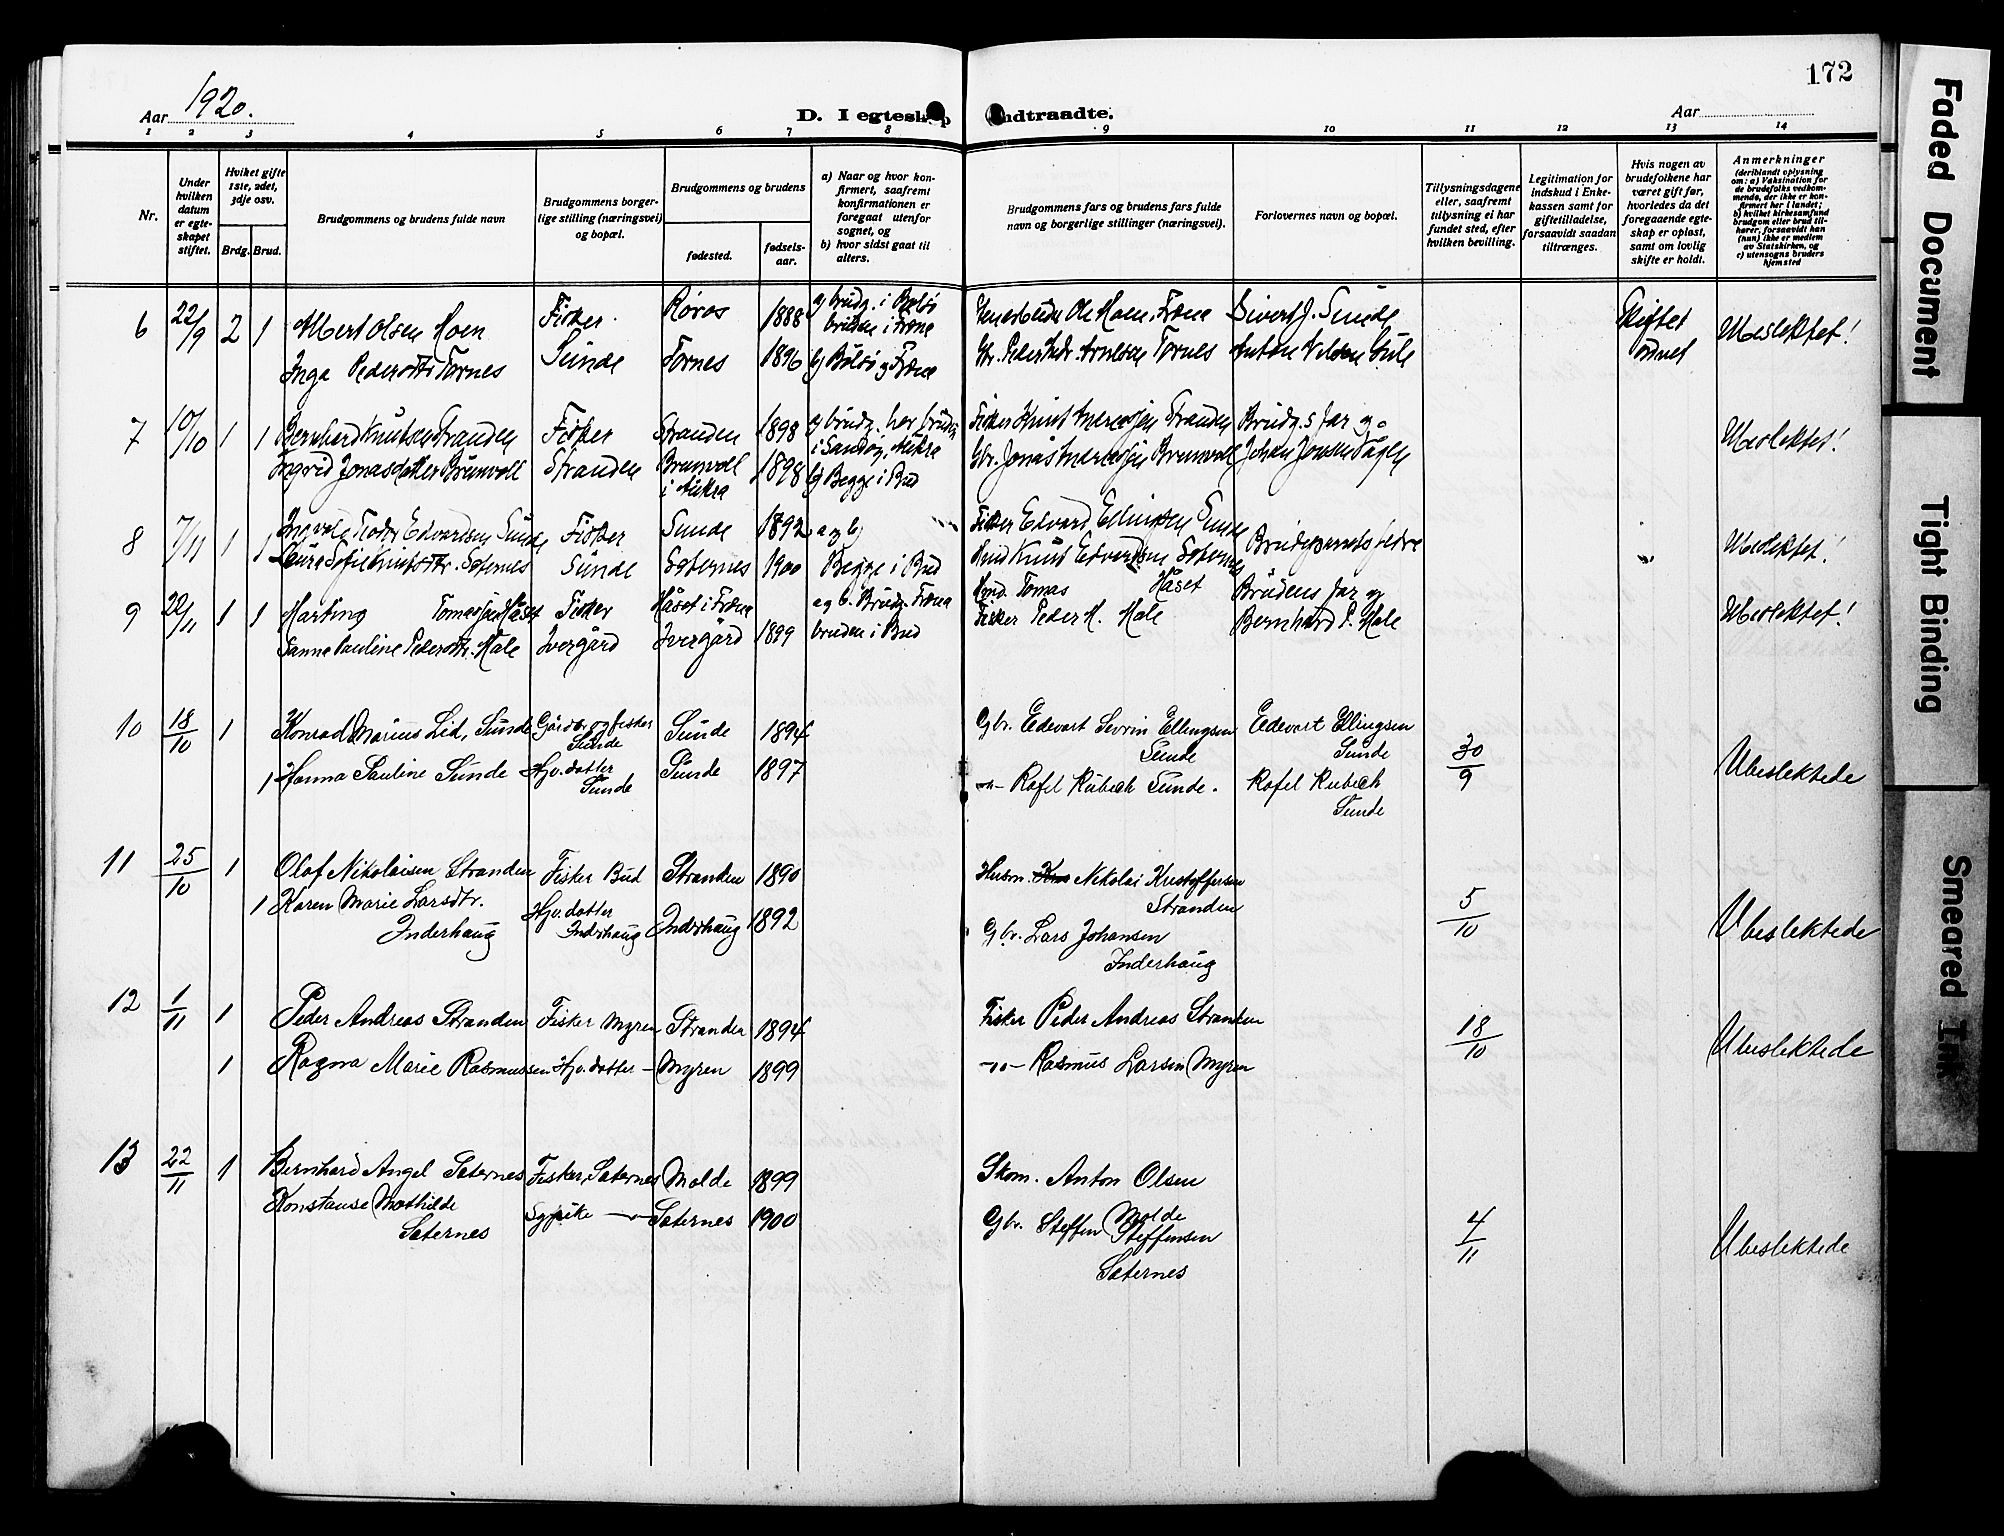 172
Aar 1920.
D. I egtesk p indtraadte.
Aar
1 2 3 4 5 6 7 8 9 10 11 12 13 14
Nr.
Under hvilken datum er egteskapet stiftet.
Hviket gifte 1ste, 2det, 3dje osv.
Brdg. Brud.
Brudgommens og brudens fulde navn
Brudgommens borgerlige stilling (næringsvei) og bopæl.
Brudgommens og brudens
fødested.
fødselsaar.
a) Naar og hvor konfirmert, saafremt konfirmationen er foregaat utenfor sognet, og
b) hvor sidst gaat til alters.
Brudgommens fars og brudens fars fulde navn og borgerlige stillinger (næringsvei).
Forlovernes navn og bopæl.
Tillysningsdagene eller, saafremt tillysning ei har fundet sted, efter hvilken bevilling.
Legitimation for indskud i Enkekassen samt for giftetilladelse, forsaavidt saadan tiltrænges.
Hvis nogen av brudefolkene har været gift før, hvorledes da det foregaaende egteskap er opløst, samt om lovlig skifte er holdt.
Anmerkninger
(deriblandt oplysning om: a) Vaksination for de brudefolks vedkommende, der ikke er konfirmert her i landet; b) hvilket kirkesamfund brudgom eller brud tilhører, forsaavidt han (hun) ikke er medlem av Statskirken, og c) utensogns bruders hjemsted
6 22/9 2 1 Albert Olsen Hoen Fisker Røros 1888 a) brudg. i Bolsø bruden i Fræna Ole Hoen, Fræna Sivert J. Sunde Skiftet Ubeslektet!
Inga Pedersdtr Tornes Sunde Tornes 1896 b) Bolsø og Fræna Tornes Anton
7 10/10 1 1 Bernhard Knutsen Stranden Fisker Stranden 1898 a) brudg. her, bruden i Sandøy, Aukra Fisker Knut Stranden Brudg.s far og Ubeslektet!
Ingrid Jonasdatter Brunvoll Stranden Brunvoll i Aukra 1898 b) Begge i Bud Gbr. Jonas Brunvoll Johan Jonsen
8 7/11 1 1 Edvardsen Sunde Fisker Sunde 1892 a og b) Fisker Edvard Ellingsen Sunde Brudeparrets fedre Ubeslektet!
Laura Sofie Knutsdtr. Sæternes Sunde Sæternes 1900 Begge i Bud Knut Edvardsen Sæternes
9 20/11 1 1 Fisker Håset i Fræna a og b. Brudg. Fræna Tomas Håset Brudens far og Ubeslektet!
Pauline Pedersdtr. Male Ivergård Ivergård 1899 bruden i Bud Fisker Peder M. Male Bernhard P. Male
10 18/10 1 Konrad Marius Lid, Sunde Gårdbr. og fisker Sunde Sunde 1894 Gbr. Edevart Sevrin Ellingsen Sunde Edevart Ellingsen Sunde 30/9 Ubeslektede
1 Hanna Pauline Sunde Hjv. datter Sunde Sunde 1897 -"- Rafel Kubech Sunde. Rafel Kubech Sunde
11 25/10 1 Olaf Nikolaisen Stranden Fisker Bud Stranden 1890 Husm. Nikolai Kristoffersen Stranden 5/10 Ubeslektede
1 Karen Marie Larsdtr. Inderhaug Hjv. datter Inderhaug Inderhaug 1892 Gbr. Lars Johansen Inderhaug
12 1/11 1 Peder Andreas Stranden Fisker Myren Stranden 1894 Fisker Peder Andreas Stranden 18/10 Ubeslektede
1 Ragna Marie Rasmussen Hjv. datter - Myren 1899 -"- Rasmus Larsen Myren
13 22/11 1 Bernhard Angel Sæternes Fisker, Sæternes Molde 1899 Skom. Anton Olsen Molde 4/11 Ubeslektede
Konstanse Mathilde Sæternes Sypike -"- Sæternes 1900 Gbr. Steffen Steffensen Sæternes
Faded Document
Tight Binding
Smeared Ink